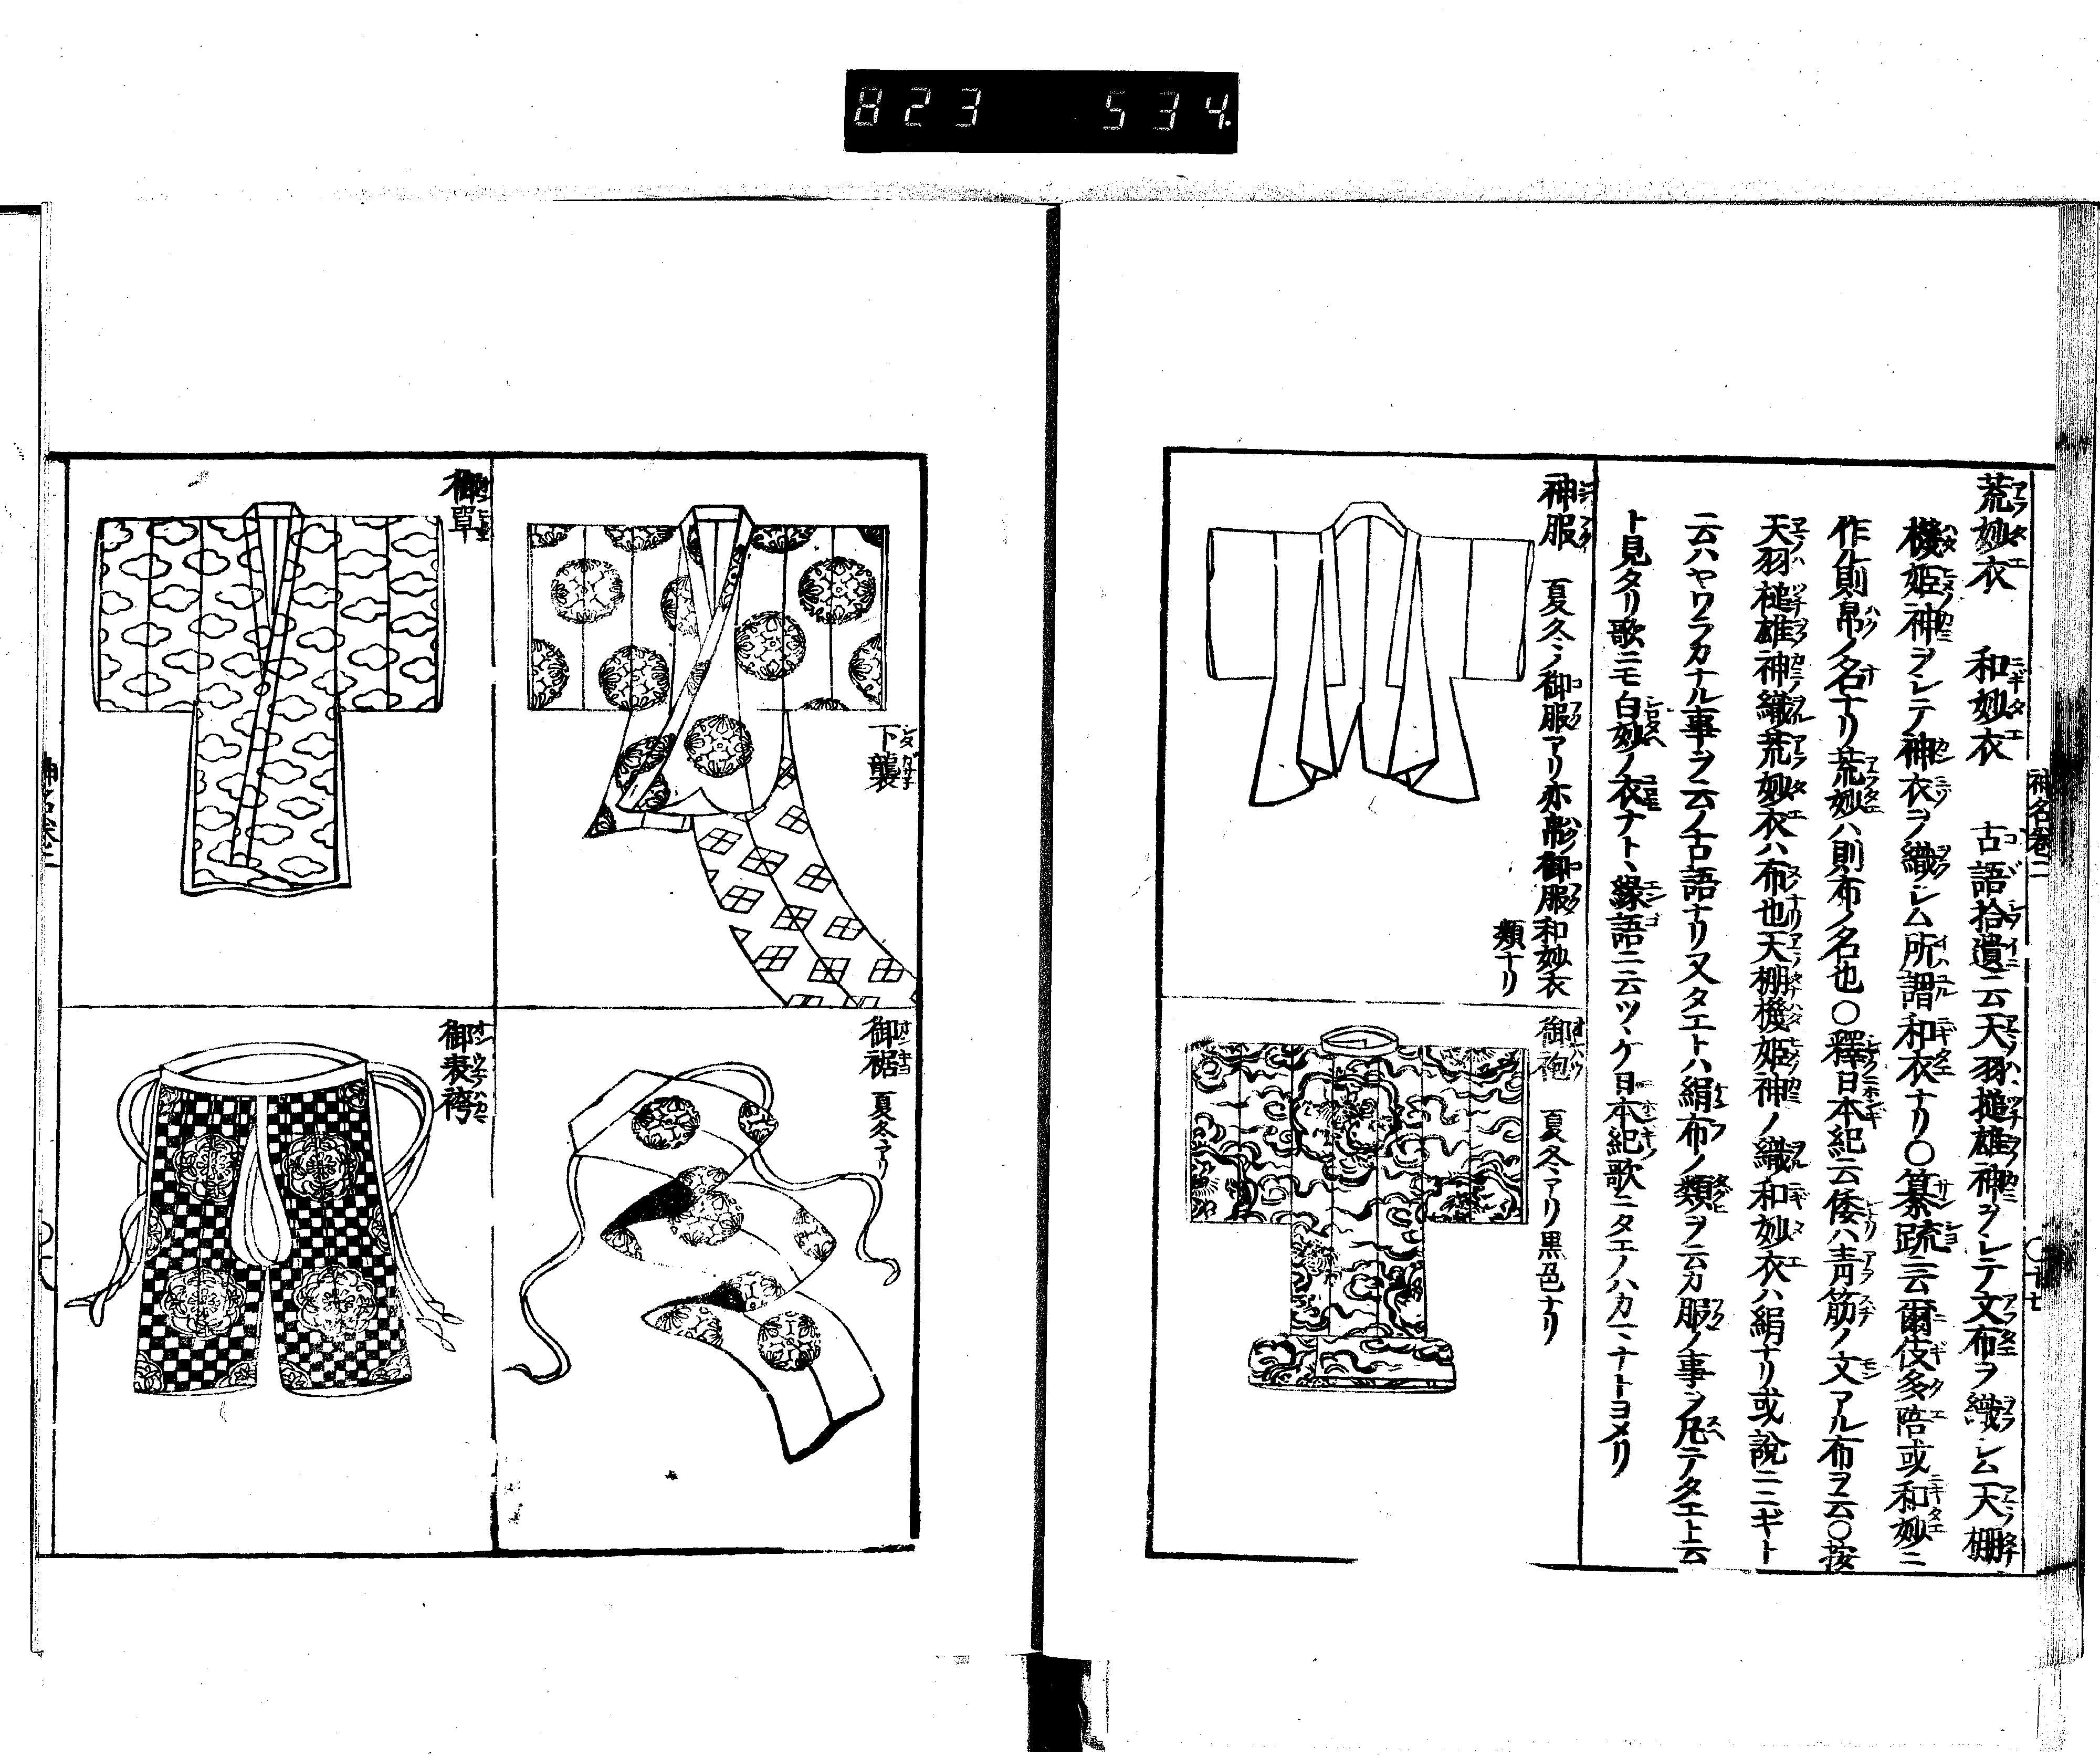 823 534
神名卷二
〇十七
荒妙衣 和妙衣 古語拾遺云天羽槌雄神ヲシテ文布ヲ織シム天棚
機姫神ヲシテ神衣ヲ織シム所謂和衣ナリ〇纂疏云爾伎多倍或和妙ニ
作ル則帛ノ名ナリ荒妙ハ則布ノ名也〇釋日本紀云倭ハ青筋ノ文アル布ヲ云〇按
天羽槌雄神織荒妙衣ハ布也天棚機姫神ノ織和妙衣ハ絹ナリ或説ニニギト
云ハヤワラカナル事ヲ云ノ古語ナリ又タエトハ絹布ノ類ヲ云カ服ノ事ヲ凡テタエト云
ト見タリ歌ニモ白妙ノ衣ナト、縁語ニ云ツ、ケ日本紀歌ニタエノハカマナトヨメリ
神服 夏冬ノ御服アリ亦御服和妙衣
類ナリ
御袍 夏冬アリ黒色ナリ
下襲
御裾 夏冬アリ
御單
御表袴